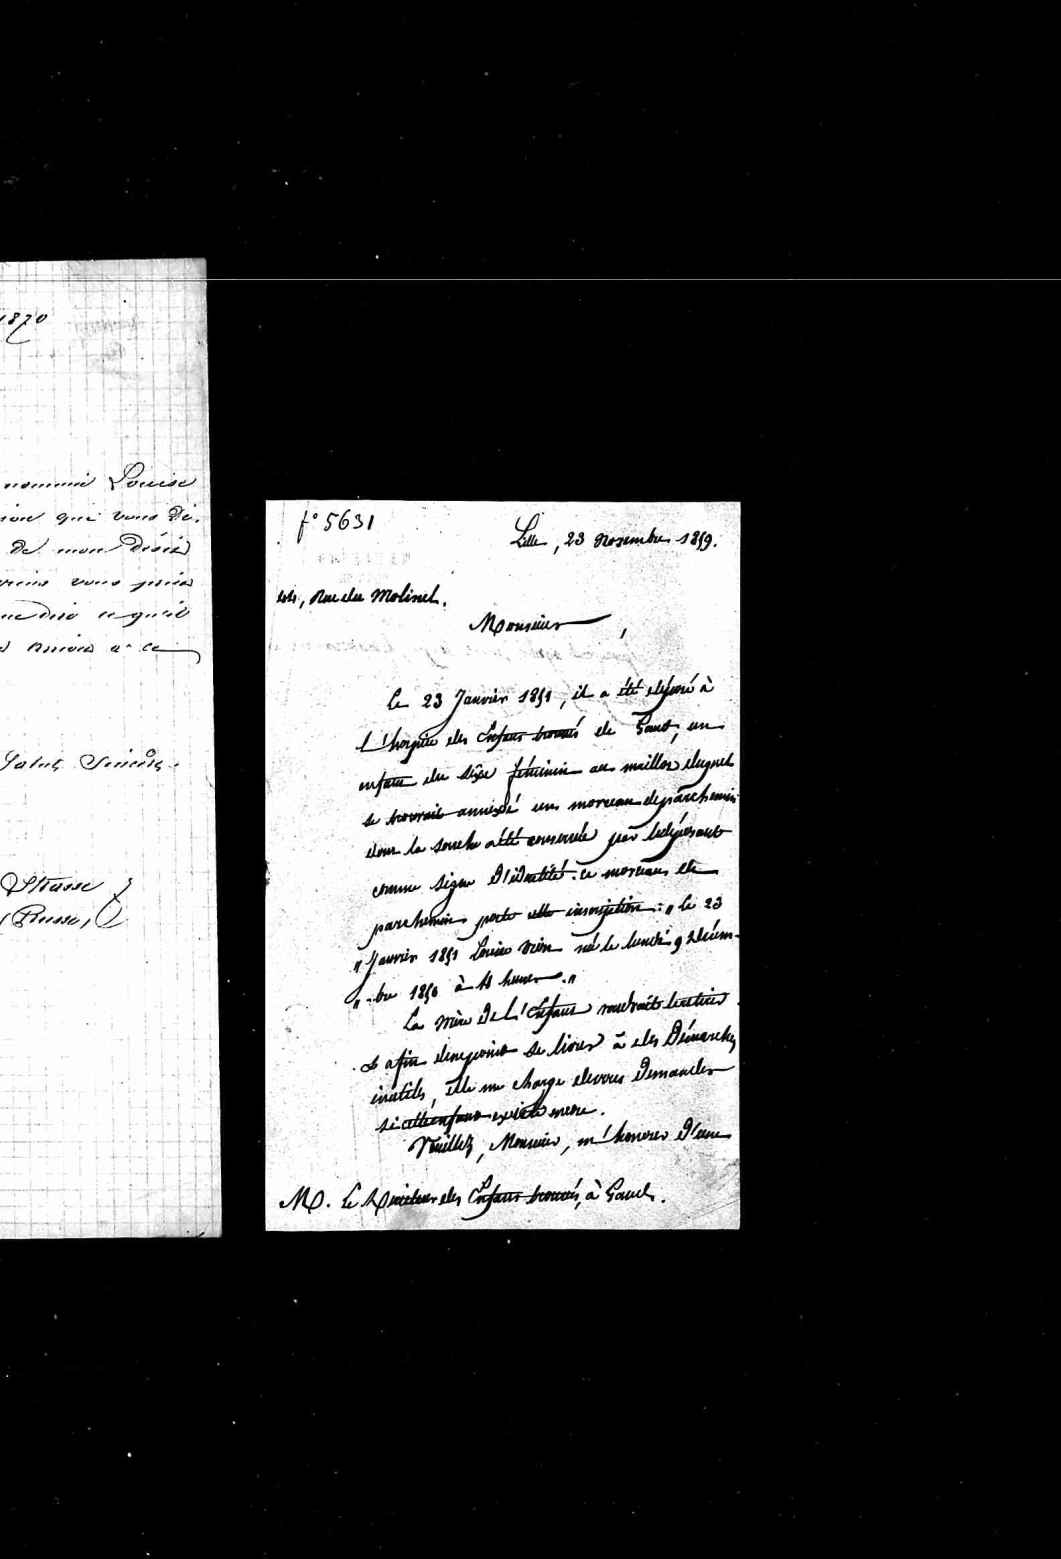 1870
nommé Louise
que vous
de mon désir
vous
a ce
Salut
Strasse
f° 5631
Lille, 23 Novembre 1859.
44, Rue du Molinel.
Monsieur,
Le 23 Janvier 1851, il a été déposé à
l'hospice des Enfans trouvés de Gand, un
enfant du sèxe féminin au maillot duquel
se trouvait annexé un morceau de parchemin
dont la souche a été conservée par le déposant
comme signe d'identité. ce morceau de
parchemin porte cette inscription : „ Le 23
„ Janvier 1851 Louise née le lundi 9 Décem-
„ bre 1850 à 11 heures. „
La mère de l'Enfant voudrait le retirer
et afin de ne point se livrer à des Démarches
inutiles, elle me charge de vous demander
si cette enfant existe encore.
Veuillez, Monsieur, m'honorer d'une
M. le Directeur des Enfans trouvés, à Gand.